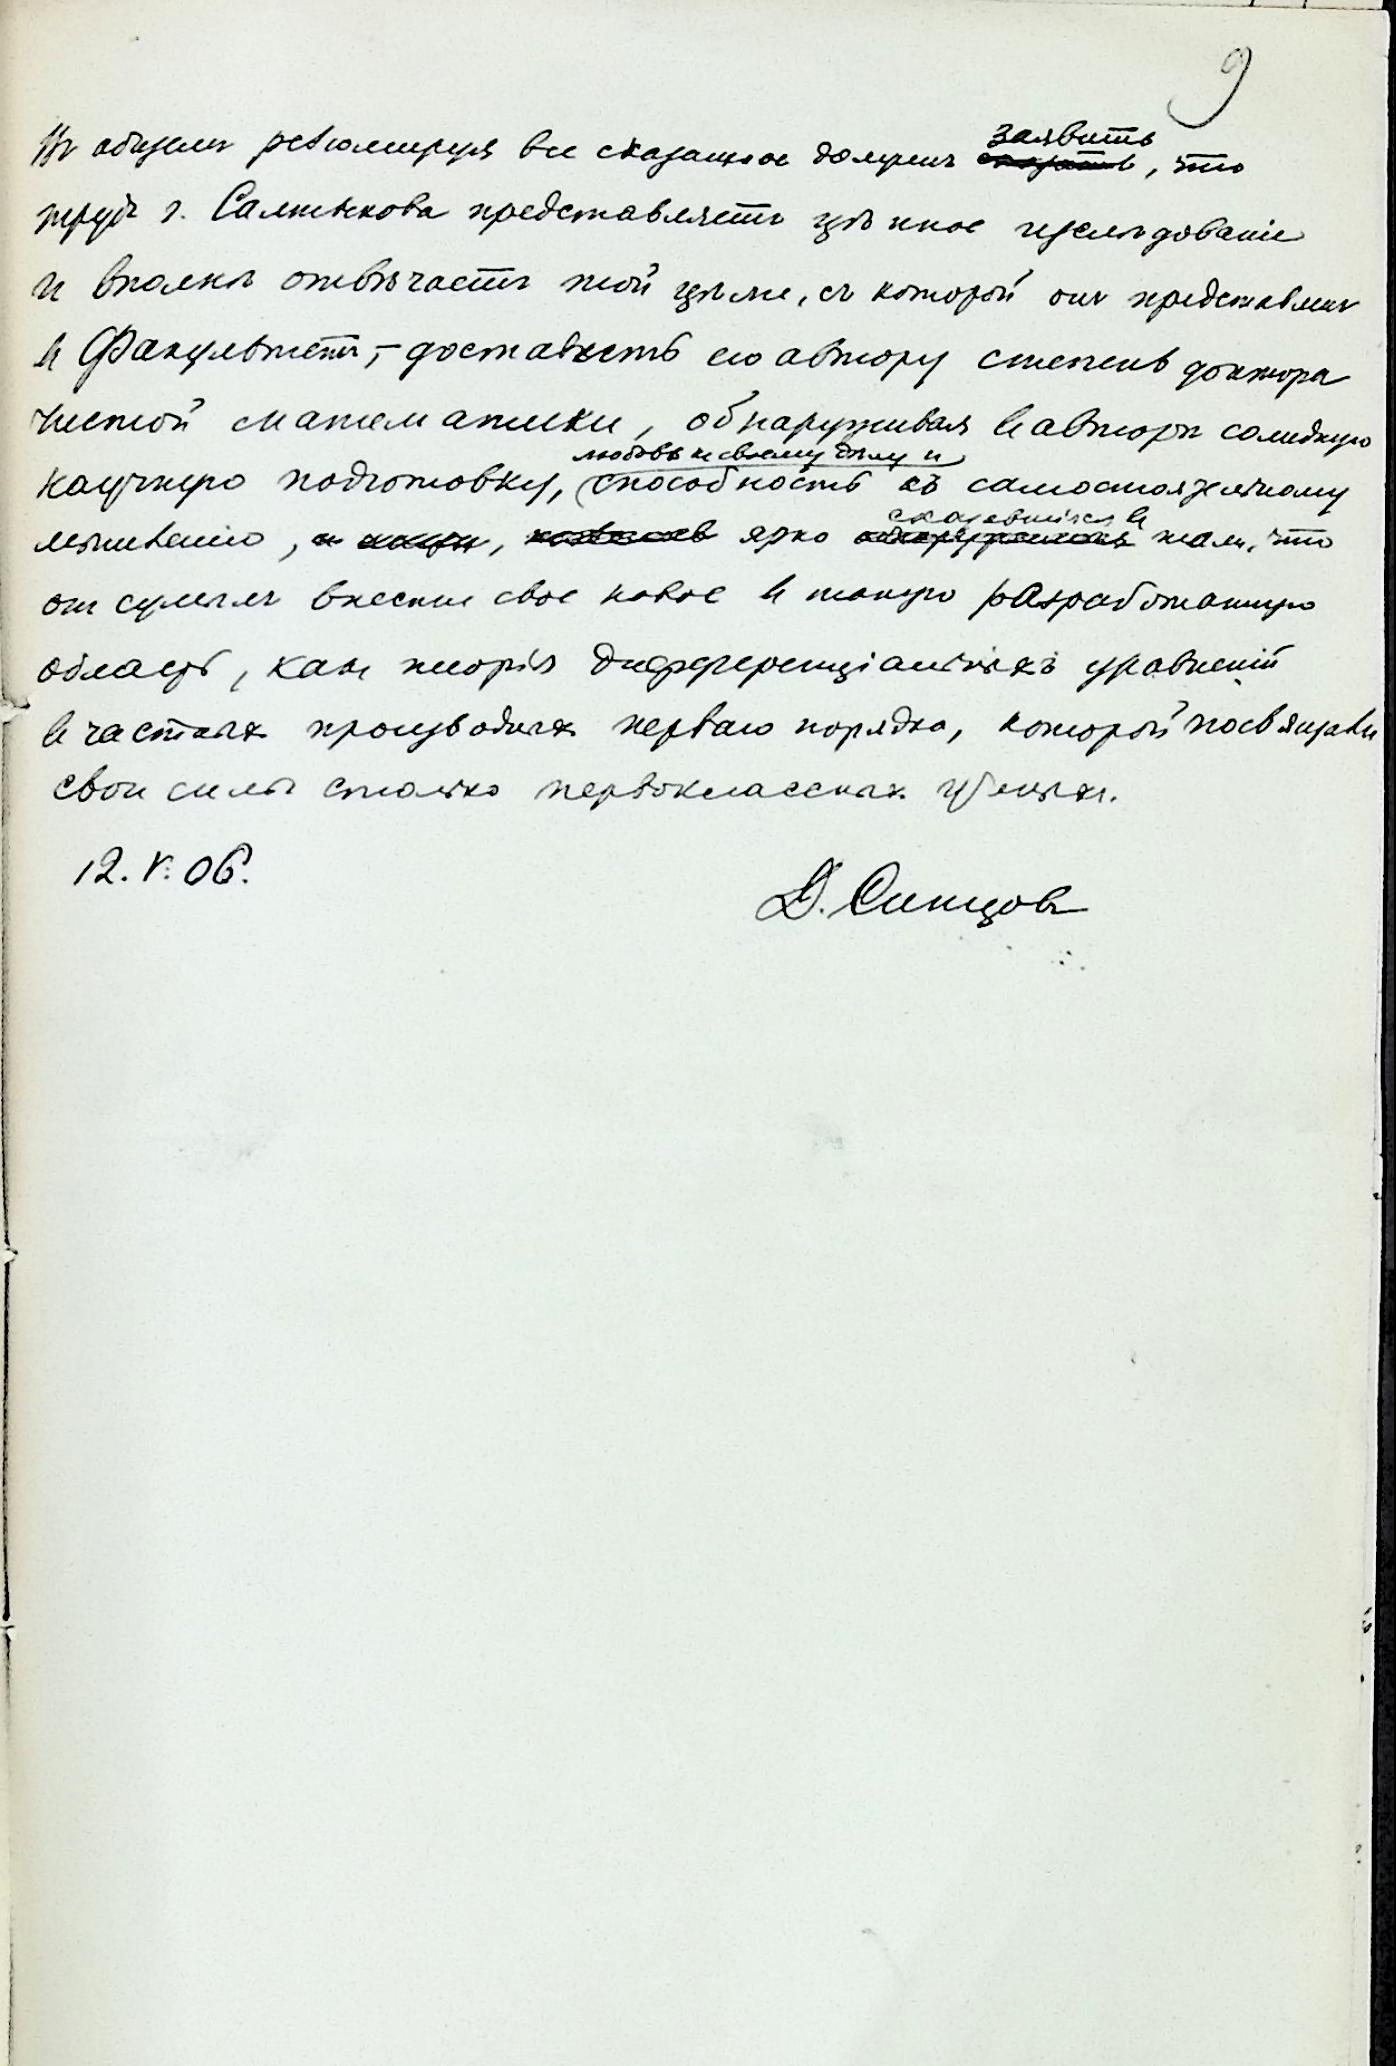 9
Въ общемъ резюмируя все сказанное долженъ заявить сказать, что
трудъ г. Салтыкова представляетъ цѣнное изслѣдованіе
и вполнѣ отвѣчаетъ той цѣли, съ которой онъ представленъ
въ Факультетъ, – доставить его автору степень доктора
чистой математики, обнаруживая въ авторѣ солидную
любовь къ своему дѣлу и
научную подготовку, способность къ самостоятельному
сказавшіяся въ
мышленію, и, ярко томъ, что
онъ сумѣлъ внести свое новое въ такую разработанную
область, какъ теорія дифференціальныхъ уравненій
въ частныхъ производныхъ перваго порядка, которой посвящали
свои силы столько первоклассныхъ ученыхъ.
12. V. 06.
Д. Синцовъ